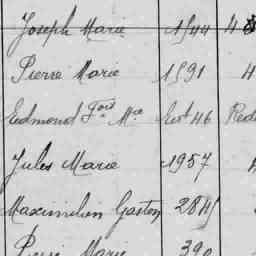 Joseph Marie 1944 4
Pierre Marie 1891 4
Edmond Fois Mce Ext 46 Red
Jules Marie 1957
Maximilien Gaston 2845
Pierre Marie 390